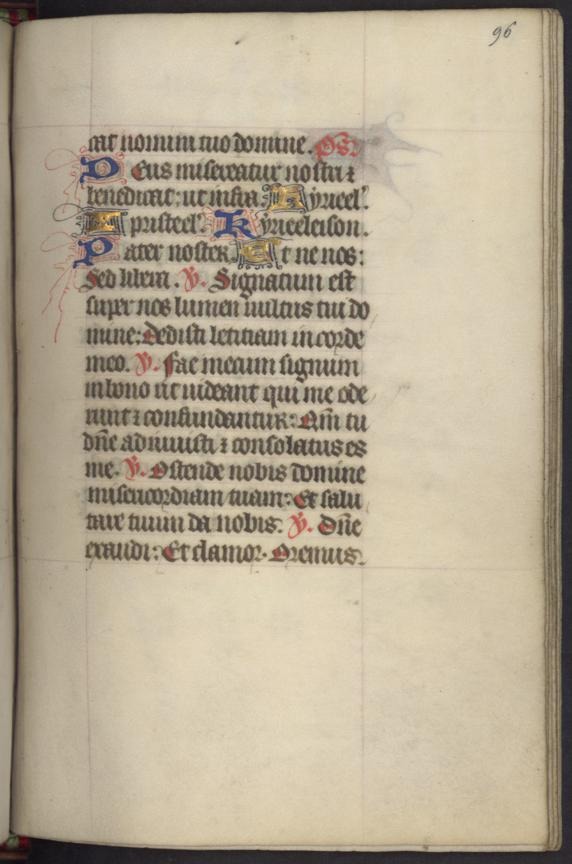 96
cat nomini tuo domine. Ps.
Deus misereatur nostri ⁊
benedicat: ut infra. Kyrieel'.
Xpristeel'. Kyrieeleison.
Pater noster. Et ne nos:
Sed libera. ℣. Signatum est
super nos lumen uultus tui do
mine: Dedisti letitiam in corde
meo. ℣. Fac mecum signum
in bono ut uideant qui me ode
runt ⁊ confundantur: Qm̄ tu
dn̄e adiuuisti ⁊ consolatus es
me. ℣. Ostende nobis domine
misericordiam tuam: Et salu
tare tuum da nobis. ℣. Dn̄e
exaudi: Et clamor. Oremus.